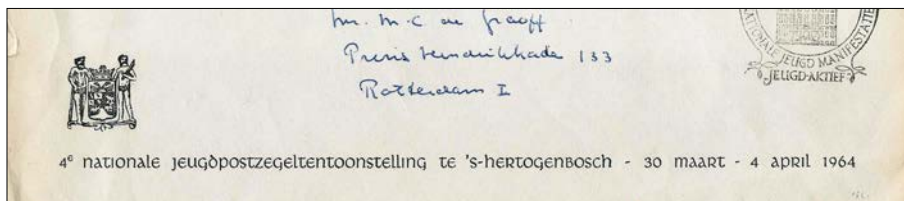 Mr. M.C de Graaff
Prins Hendrikkade 133
Rotterdam I
NATIONALE JEUGD MANIFESTATIE
JEUGD-AKTIEF
4e nationale jeugdpostzegeltentoonstelling te 's-hertogenbosch - 30 maart - 4 april 1964